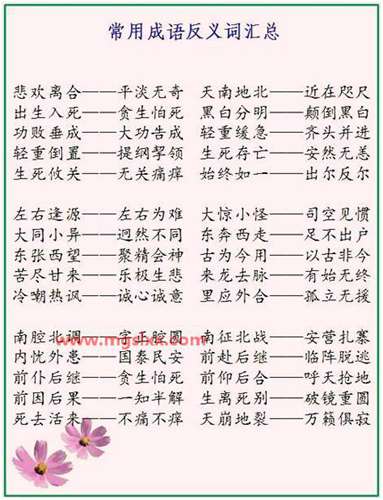 常用成语反义词汇总
悲欢离合——平淡无奇 天南地北——近在咫尺
出生入死——贪生怕死 黑白分明——颠倒黑白
功败垂成——大功告成 轻重缓急——齐头并进
轻重倒置——提纲挈领 生死存亡——安然无恙
生死攸关——无关痛痒 始终如一——出尔反尔
左右逢源——左右为难 大惊小怪——司空见惯
大同小异——迥然不同 东奔西走——足不出户
东张西望——聚精会神 古为今用——以古非今
苦尽甘来——乐极生悲 来龙去脉——有始无终
冷嘲热讽——诚心诚意 里应外合——孤立无援
南腔北调——字正腔圆 南征北战——安营扎寨
www.mgsxx.com
内忧外患——国泰民安 前赴后继——临阵脱逃
前仆后继——贪生怕死 前仰后合——呼天抢地
前因后果——一知半解 生离死别——破镜重圆
死去活来——不痛不痒 天崩地裂——万籁俱寂